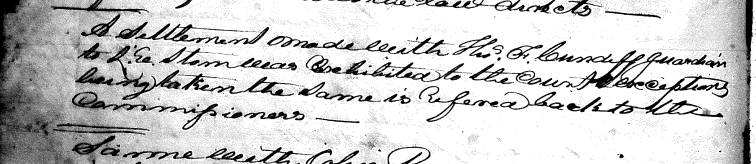 law directs —
A Settlement made with Thos. F. Cundiff guardian
to Stom was Exhibited to the Court & exceptions
being taken the same is refered back to the
Commissioners —
Same with